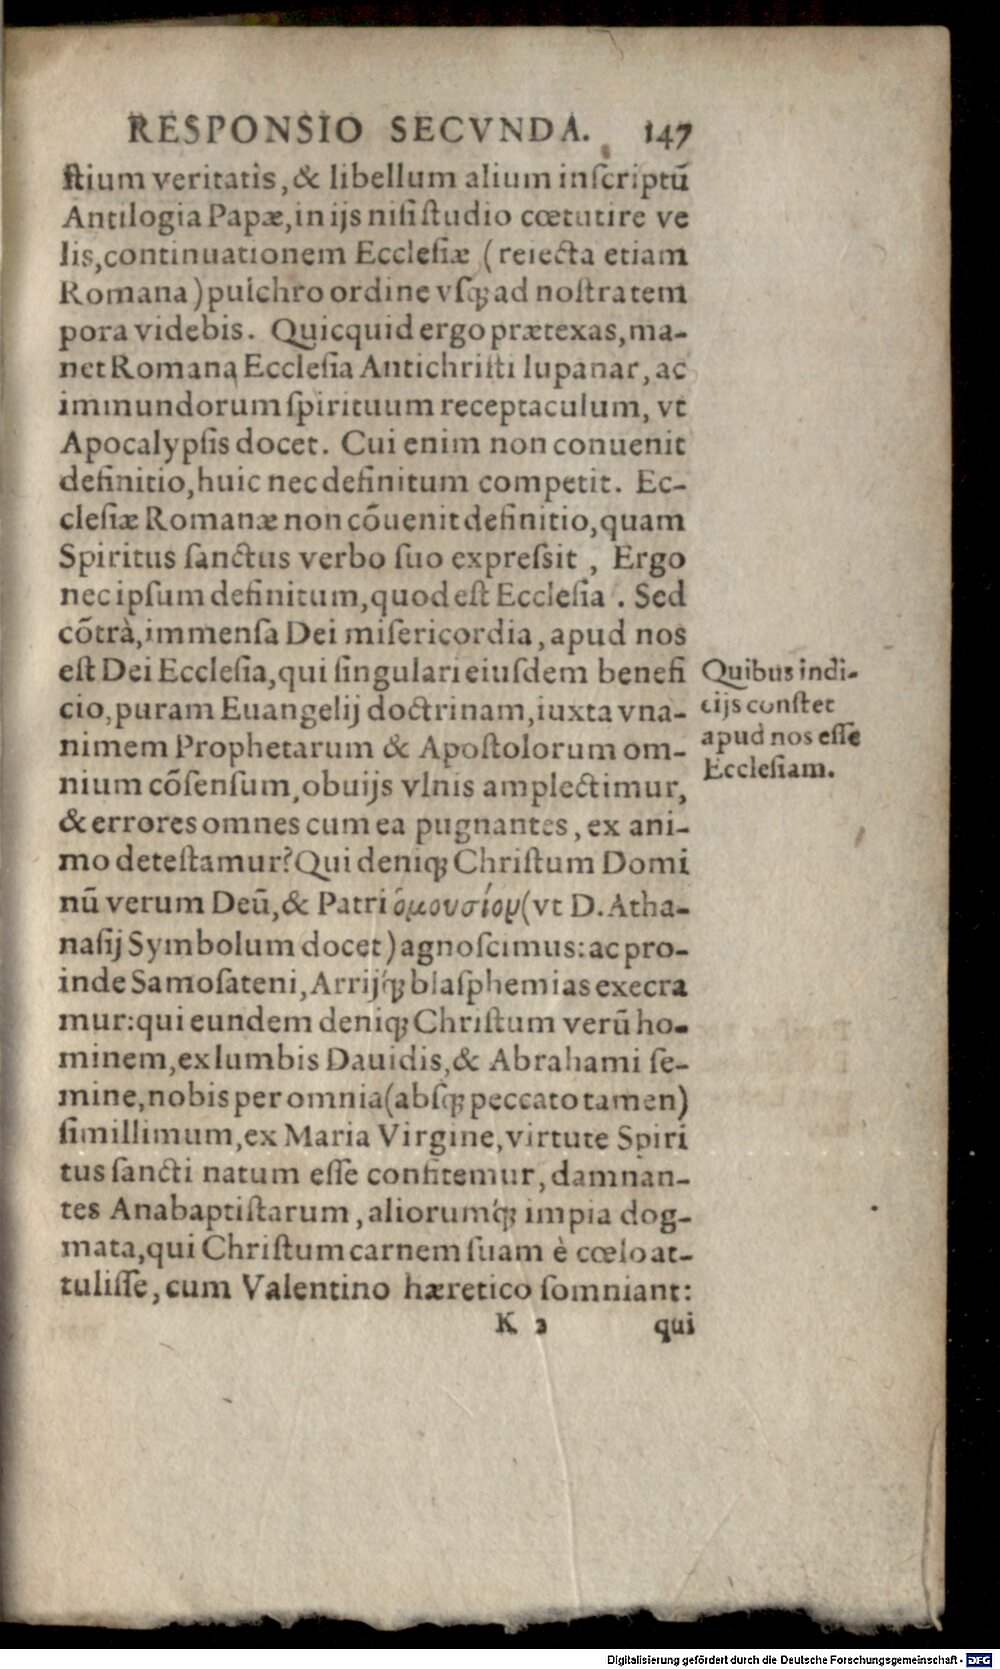 RESPONSIO SECVNDA. 147
ſtium veritatis, & libellum alium inſcriptū
Antilogia Papæ, in ijs niſi ſtudio cœtutire ve
lis, continuationem Eccleſiæ (reiecta etiam
Romana) pulchro ordine vſq; ad noſtra tem
pora videbis. Quicquid ergo prætexas, ma-
net Romana Eccleſia Antichriſti lupanar, ac
immundorum ſpirituum receptaculum, vt
Apocalypſis docet. Cui enim non conuenit
definitio, huic nec definitum competit. Ec-
cleſiæ Romanæ non cōuenit definitio, quam
Spiritus ſanctus verbo ſuo expreſsit, Ergo
nec ipſum definitum, quod eſt Eccleſia. Sed
cōtrà, immenſa Dei miſericordia, apud nos
eſt Dei Eccleſia, qui ſingulari eiuſdem benefi
cio, puram Euangelij doctrinam, iuxta vna-
nimem Prophetarum & Apoſtolorum om-
nium cōſenſum, obuijs vlnis amplectimur,
& errores omnes cum ea pugnantes, ex ani-
mo deteſtamur? Qui deniq; Chriſtum Domi
nū verum Deū, & Patri ὁμουσίον (vt D. Atha-
naſij Symbolum docet) agnoſcimus: ac pro-
inde Samoſateni, Arrijq́; blaſphemias execra
mur: qui eundem deniq; Chriſtum verū ho-
minem, ex lumbis Dauidis, & Abrahami ſe-
mine, nobis per omnia (abſq; peccato tamen)
ſimillimum, ex Maria Virgine, virtute Spiri
tus ſancti natum eſſe confitemur, damnan-
tes Anabaptiſtarum, aliorumq́; impia dog-
mata, qui Chriſtum carnem ſuam è cœlo at-
tuliſſe, cum Valentino hæretico ſomniant:
K 2 qui
Quibus indi-
cijs conſtet
apud nos eſſe
Eccleſiam.
Digitalisierung gefördert durch die Deutsche Forschungsgemeinschaft - DFG